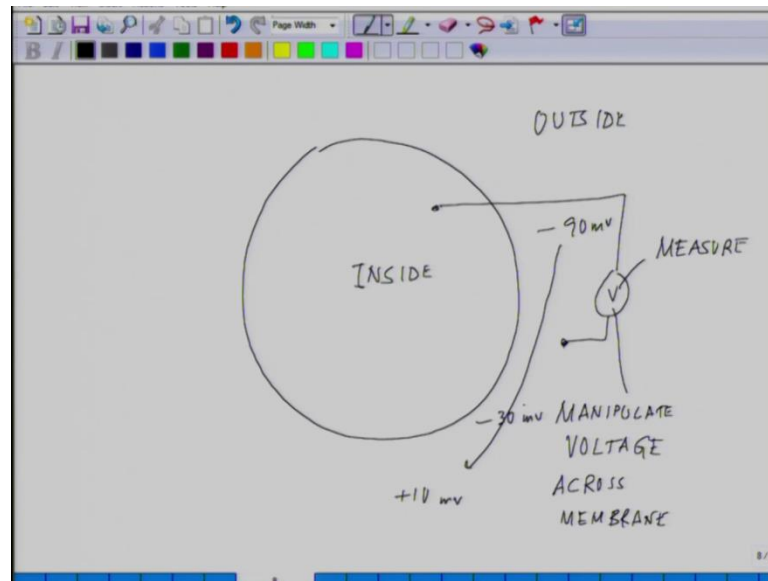 Page Width
B I
OUTSIDE
- 90 mv
MEASURE
INSIDE
V
- 30 mv
MANIPULATE
VOLTAGE
+10 mv
ACROSS
MEMBRANE
8/